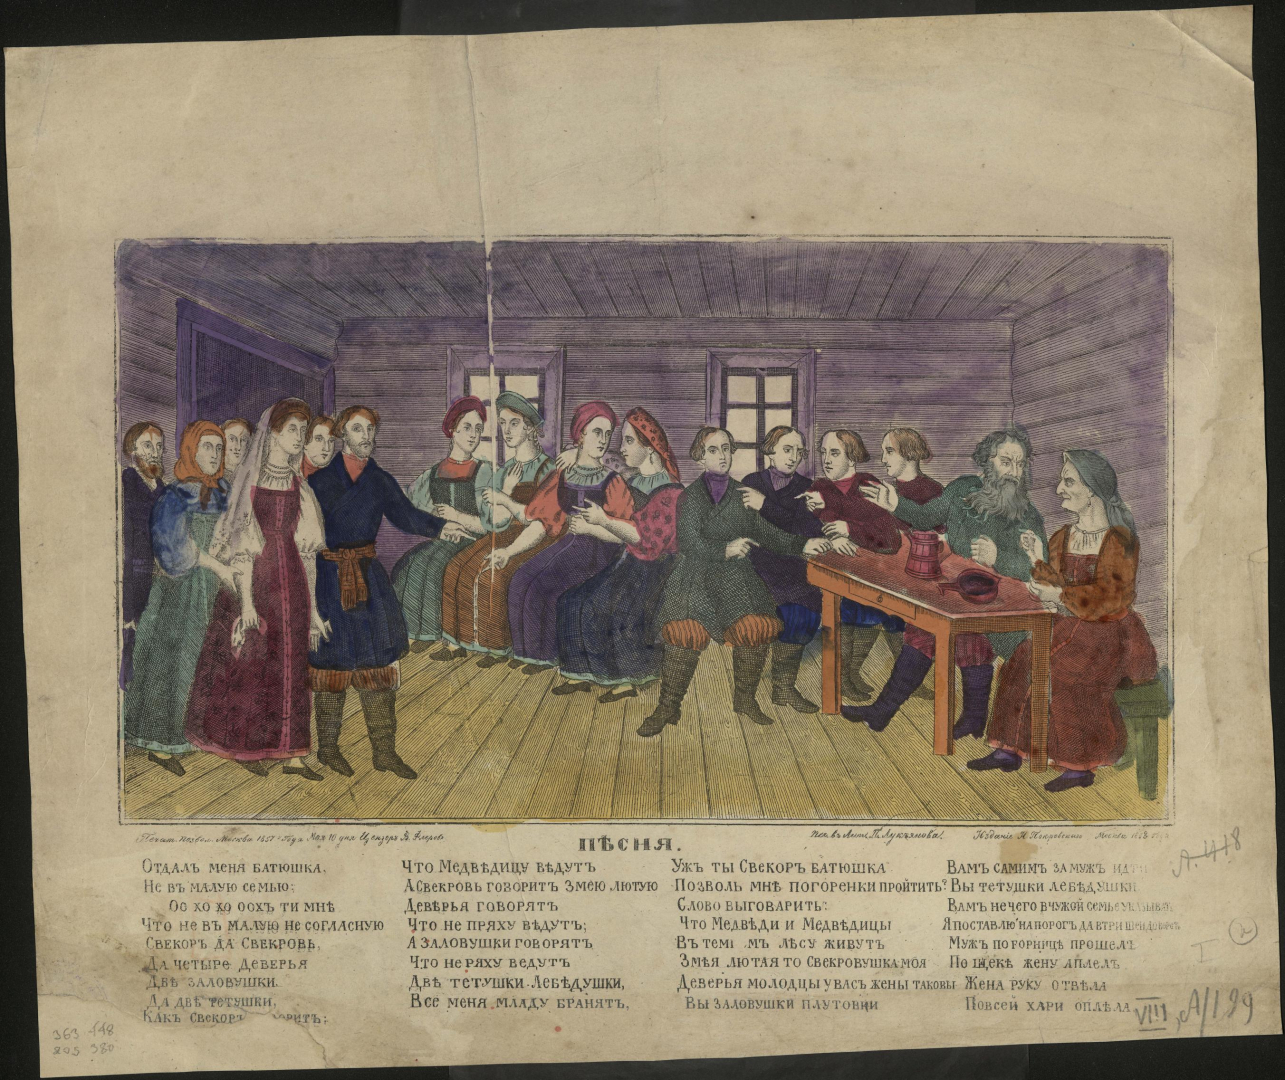 Печат. позвол. Москва 1857 года Мая 10 дня Цензоръ В. Флеровъ
Печ. въ Лит. П. Лукьянова.
Издание И. Покровскаго Москва
ПѢСНЯ.
Отдалъ меня батюшка,
Не въ малую семью;
Ос хо хо оохъ ти мнѣ
Что не въ малую не согласную
Свекоръ да Свекровь,
Да четыре Деверья
Двѣ заловушки.
Да двѣ тетушки,
Какъ Свекоръ
Что Медвѣдицу вѣдутъ
А Свекровь говоритъ Змею лютую
Девѣрья говорятъ
Что не пряху вѣдутъ;
А Заловушки говорятъ
Что не ряху ведутъ
Двѣ тетушки Лебѣдушки,
Все меня младу бранятъ,
Ужъ ты Свекоръ батюшка
Позволь мнѣ погоренки пройтить?
Слово выговарить:
Что Медвѣди и Медвѣдицы
Въ лѣсу живутъ
Змѣя лютая то Свекровушка моя
Деверья молодцы у васъ жены таковы
Вы заловушки плутовни
Вамъ самимъ за мужъ
Вы тетушки лебѣдушки
Вамъ нечего в чужой семье
Я поставлю на порогъ да в три шеи
Мужъ по горнице прошелъ
По щекѣ жену
Жена руку отвѣла
По всей хари оплѣла
А-418
2
I
VIII А/199
363 448
205 380